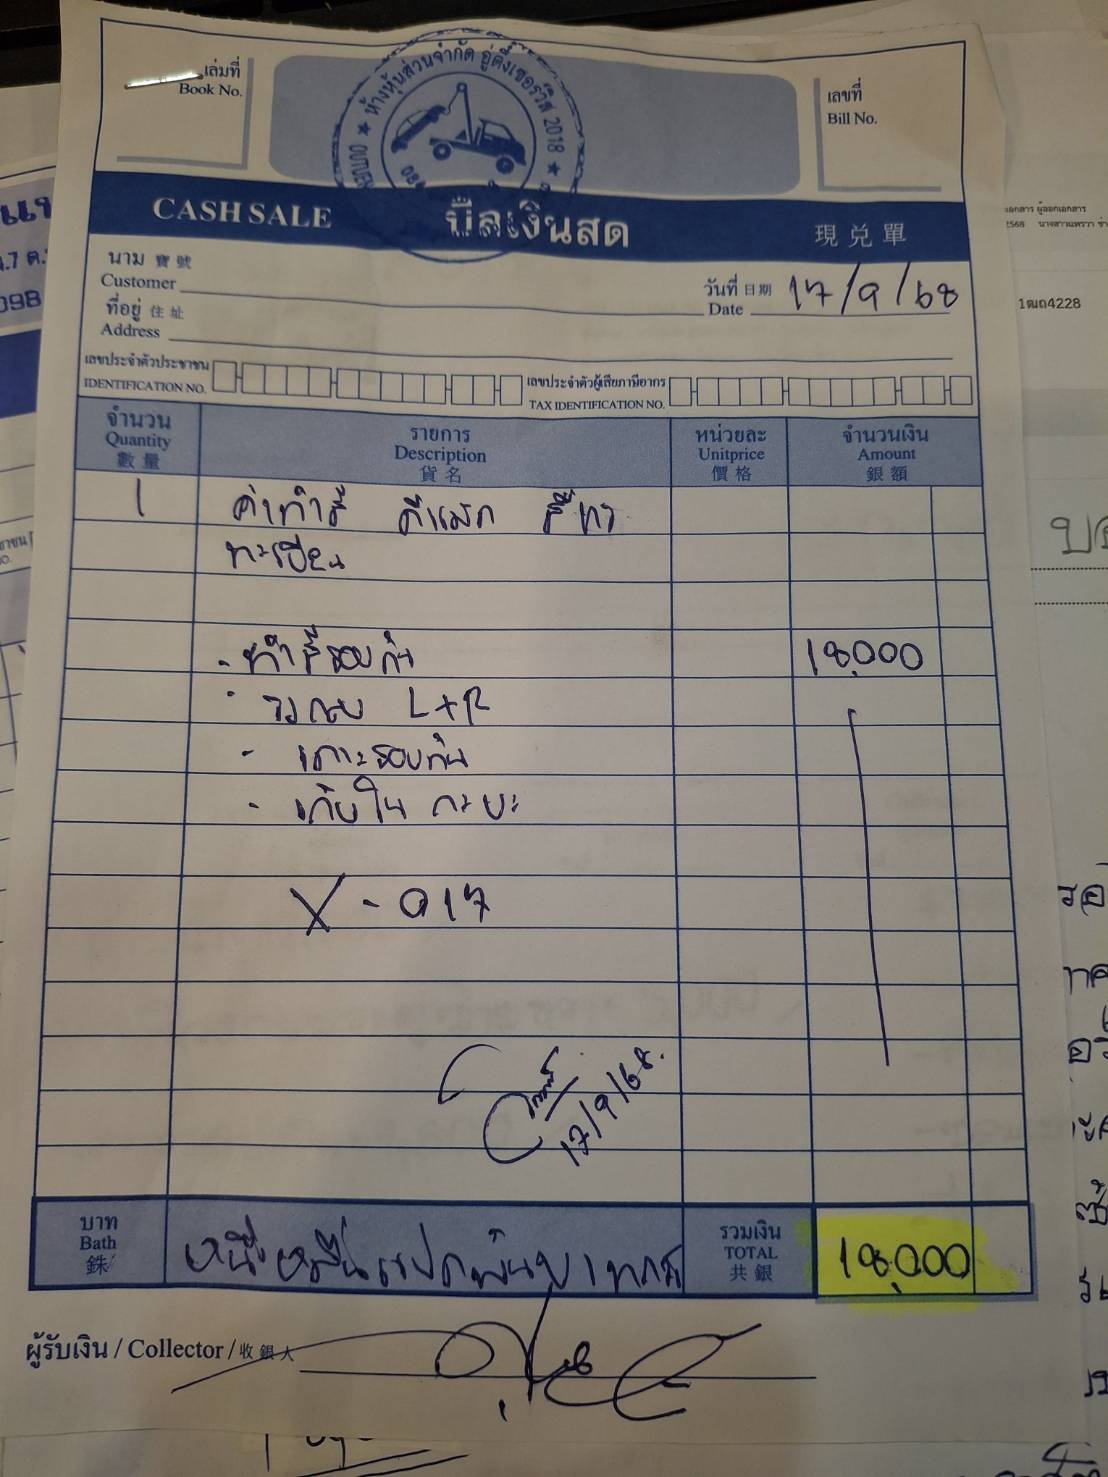 เล่มที่
Book No.
ห้างหุ้นส่วนจำกัด อู่ตึ๋งเซอร์วิส 2018
เลขที่
Bill No.
CASH SALE บิลเงินสด 現兌單
นาม 寶號
Customer
วันที่ 日期
Date 17/9/68
ที่อยู่ 住址
Address
เลขประจำตัวประชาชน
IDENTIFICATION NO.
เลขประจำตัวผู้เสียภาษีอากร
TAX IDENTIFICATION NO.
จำนวน รายการ หน่วยละ จำนวนเงิน
Quantity Description Unitprice Amount
數量 貨名 價格 銀額
1 ค่าทำสี ดีแมค สีเทา
ทะเบียน
- ทำสีรอบคัน 18,000
- L+R
- เคาะรอบคัน
- เก็บใน กะบะ
X-017
17/9/68.
บาท
Bath
銖
หนึ่งหมื่นแปดพันบาทถ้วน
รวมเงิน
TOTAL
共銀
18,000
ผู้รับเงิน / Collector / 收銀人
1ฒถ4228